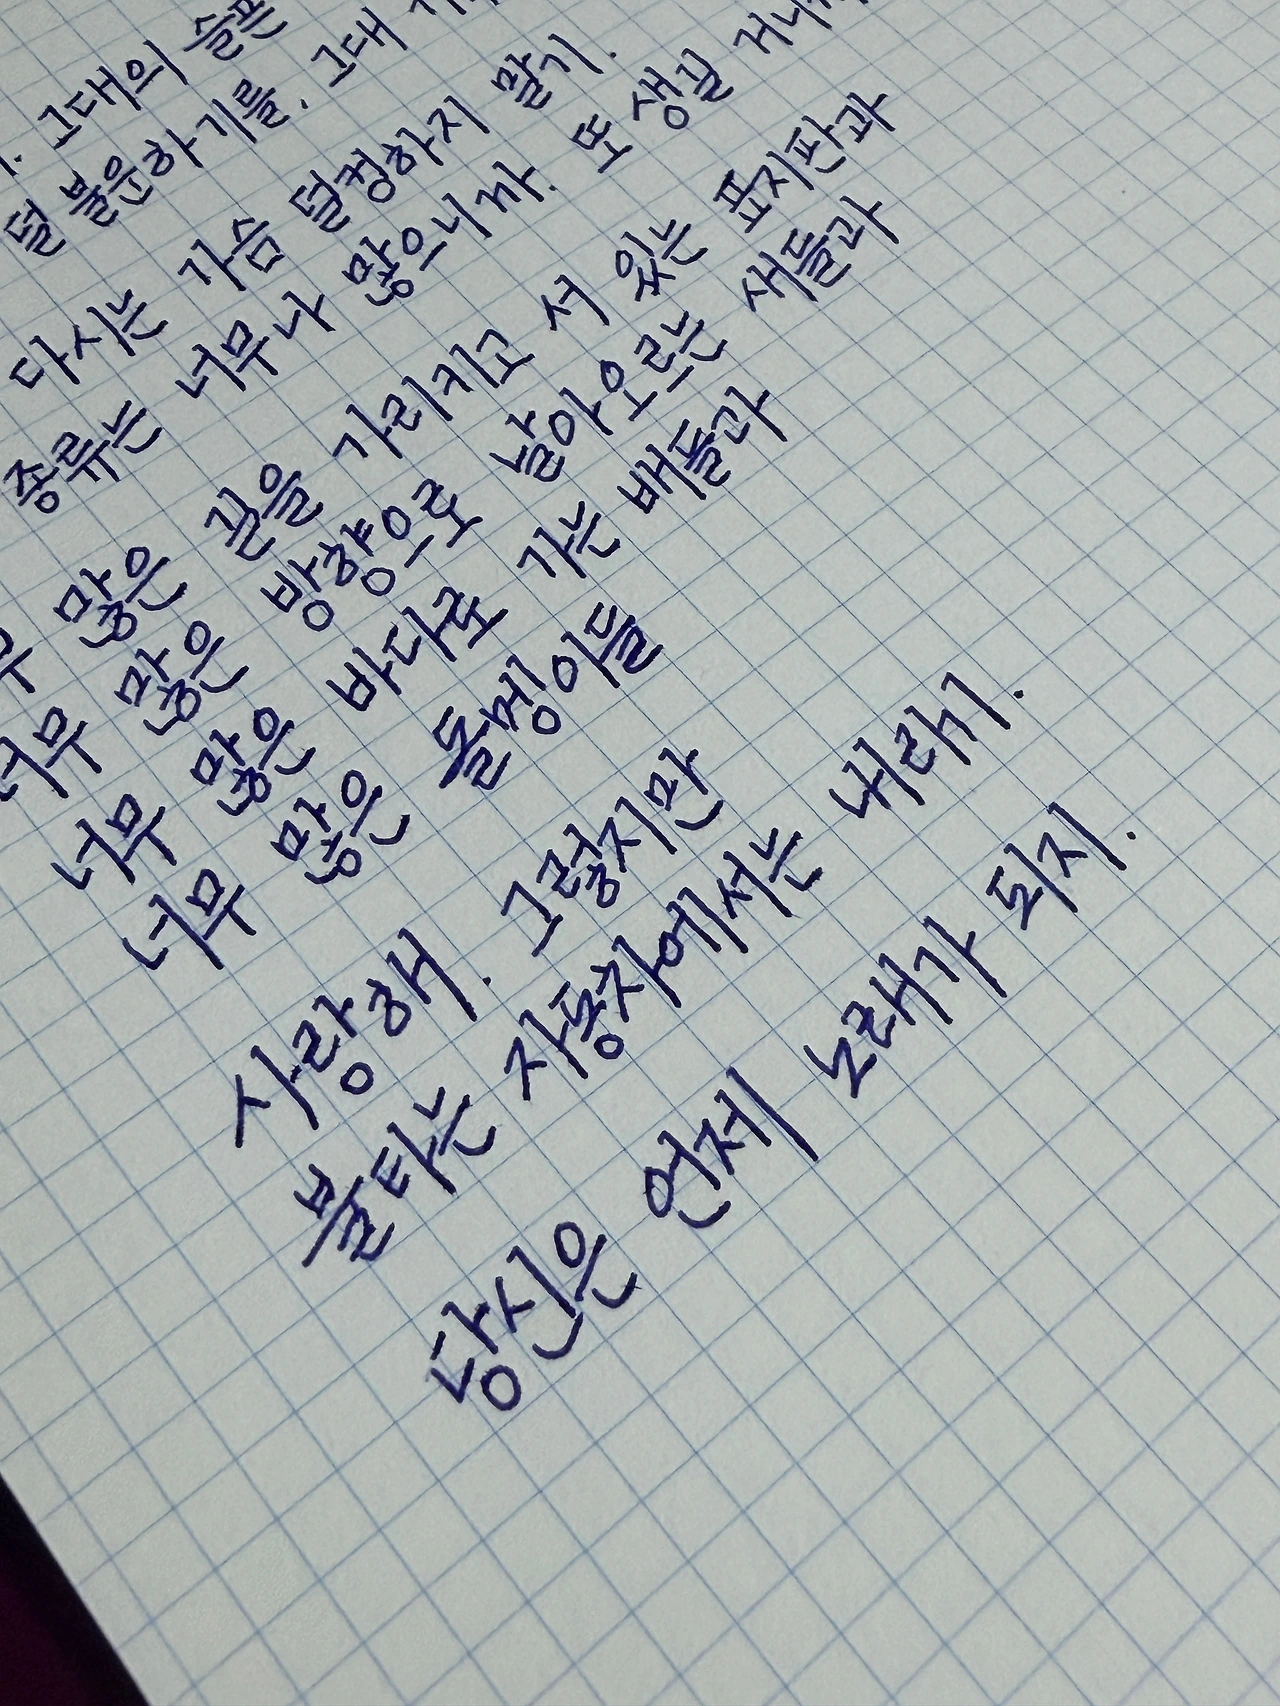 그대의 슬픈
덜 불운하기를. 그대
다시는 가슴 덜컹하지 말기.
종류는 너무나 많으니까. 또 생길 거니까
많은 끝을 가리키고 서 있는 표지판과
너무 많은 방향으로 날아오르는 새들과
너무 많은 바다로 가는 배들과
너무 많은 돌멩이들
사랑해. 그렇지만
불타는 자동차에서는 내리기.
당신은 언제 노래가 되지.